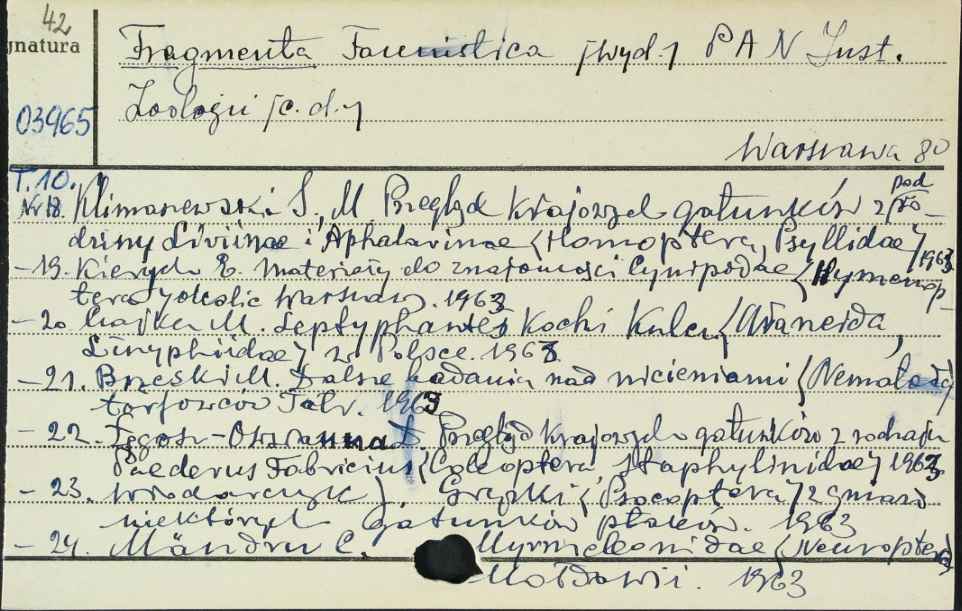 42
gnatura
Fragmenta Faunistica /wyd./ P A N Inst.
03965
Zoologii /c. d./
Warszawa 80
T. 10.
Nr 18. Klimaszewski S. M. Przegląd krajowych gatunków z podro-
dziny Liviinae i Aphalarinae (Homoptera, Psyllidae) 1963
- 19. Kierych E. Materiały do znajomości Cynipodae (Hymenop-
tera) okolic Warszawy. 1963
- 20 Czajka M. Leptyphantes Kochi Kulcz (Araneida,
Linyphiidae) w Polsce. 1963
- 21. Brzeski M. Dalsze badania nad nicieniami (Nematoda)
torfowców Tatr. 1963
- 22. Zgoar-Osuanna D. Przegląd krajowych gatunków z rodzaju
Paederus Fabricius (Coleoptera Staphylinidae) 1963
- 23. Wlodarczyk J. Gryzki (Psocoptera) z gniazd
niektórych gatunków ptaków. 1963
- 24. Mândru C. Myrmeleonidae (Neuroptera)
Mołdawii. 1963